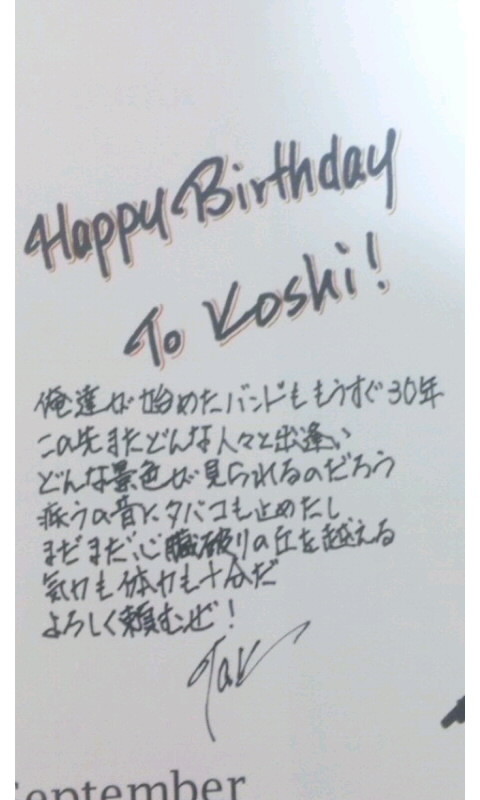 Happy Birthday
To Koshi!
俺達が始めたバンドももうすぐ30年
この先またどんな人々と出逢い
どんな景色が見られるのだろう
疾うの昔にタバコも止めたし
まだまだ心臓破りの丘を越える
気力も体力も十分だ
よろしく頼むぜ!
Tak
September